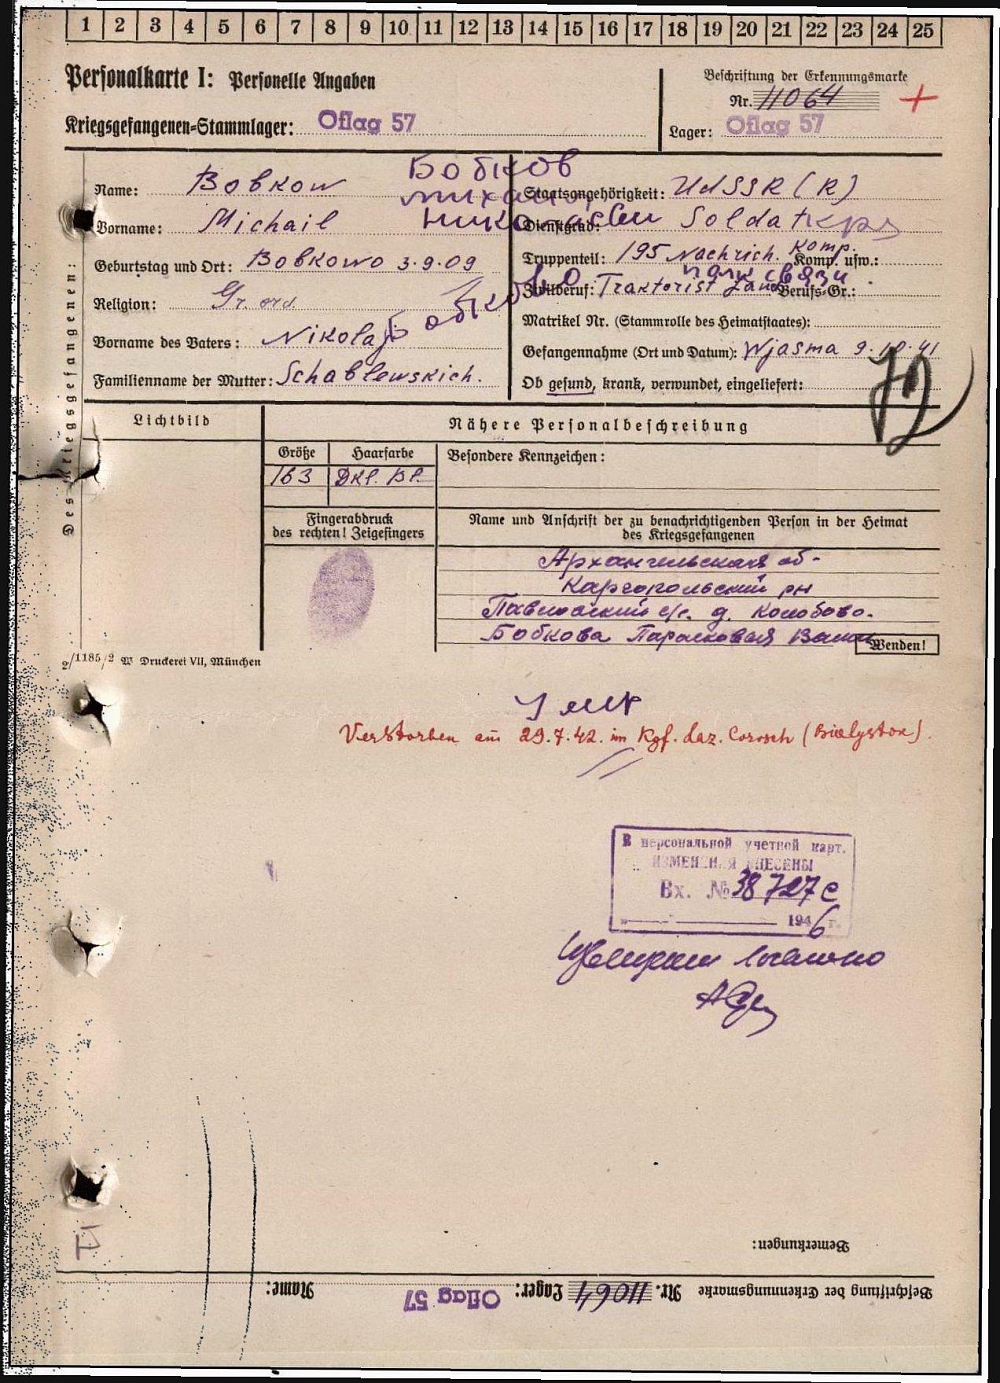 1 2 3 4 5 6 7 8 9 10 11 12 13 14 15 16 17 18 19 20 21 22 23 24 25
Personalkarte I: Personelle Angaben
Beschriftung der Erkennungsmarke
Nr. 11064 +
Kriegsgefangenen-Stammlager: Oflag 57
Lager: Oflag 57
Des Kriegsgefangenen:
Бобков
Михаил
Николаевич
Name: Bobkow
Vorname: Michail
Geburtstag und Ort: Bobkowo 3.9.09
Бобково
Religion: Gr. ord.
Vorname des Vaters: Nikolaj
Familienname der Mutter: Schablewskich.
Staatsangehörigkeit: UdSSR (R)
Dienstgrad: Soldat кр
Truppenteil: 195 Nachrich. Komp. Komp. usw.:
полк связи
Zivilberuf: Traktorist Land Berufs-Gr.:
Matrikel Nr. (Stammrolle des Heimatstaates):
Gefangennahme (Ort und Datum): Wjasma 9.10.41
Ob gesund, krank, verwundet, eingeliefert:
Lichtbild
Nähere Personalbeschreibung
Größe Haarfarbe Besondere Kennzeichen:
163 Dkl. Bl.
Fingerabdruck
des rechten! Zeigefingers
Name und Anschrift der zu benachrichtigenden Person in der Heimat
des Kriegsgefangenen
Архангельская об-
Каргопольский рн
с/с. д. Колобово.
Бобкова Парасковья
Wenden!
2/1185/2 W Druckerei VII, München
Verstorben am 29.7.42. im Kgf. Laz. Corosch (Bialystok).
В персональной учетной карт.
ИЗМЕНЕНИЯ ВНЕСЕНЫ
Вх. № 38727с
1946 г.
Bemerkungen:
Beschriftung der Erkennungsmarke Nr. 11064 Lager: Oflag 57 Name: